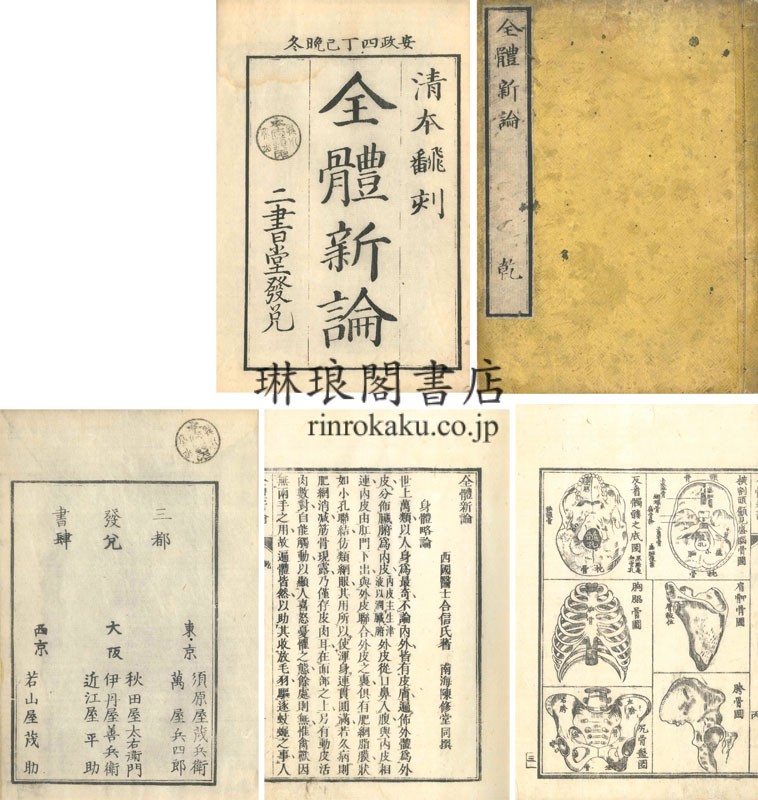 安政四丁己晩冬
清本飜刻
全體新論
二書堂發兌
全體新論
乾
琳琅閣書店
rinrokaku.co.jp
三都
發兌
書肆
東京
須原屋茂兵衛
萬屋兵四郎
大阪
秋田屋太右衛門
伊丹屋善兵衛
近江屋平助
西京
若山屋茂助
全體新論
西國醫士合信氏著 南海陳修堂同撰
身體略論
世上萬類以人身爲最奇不論內外皆有皮膚遍佈外體爲外
皮分佈臟腑爲內皮
連內皮由肛門下出與外皮聯合外皮之裏俱有肥網脂膜狀
如小孔聯結仿類網眼其用所以使渾身連貫圃滿若久病則
肥網消減筋骨現露乃僅存皮肉耳在面部之上另有動皮活
肉數對自能觸動以顯人喜怒憂懼之態餘處則無惟禽獸因
無兩手之用故遍體皆然以助其收放毛羽驅逐蚊蠅之事人
橫割頭顱見落腦骨圖
反看髑髏之底圖
肩胛骨圖
胸脇骨圖
胯骨圖
尻骨盤圖